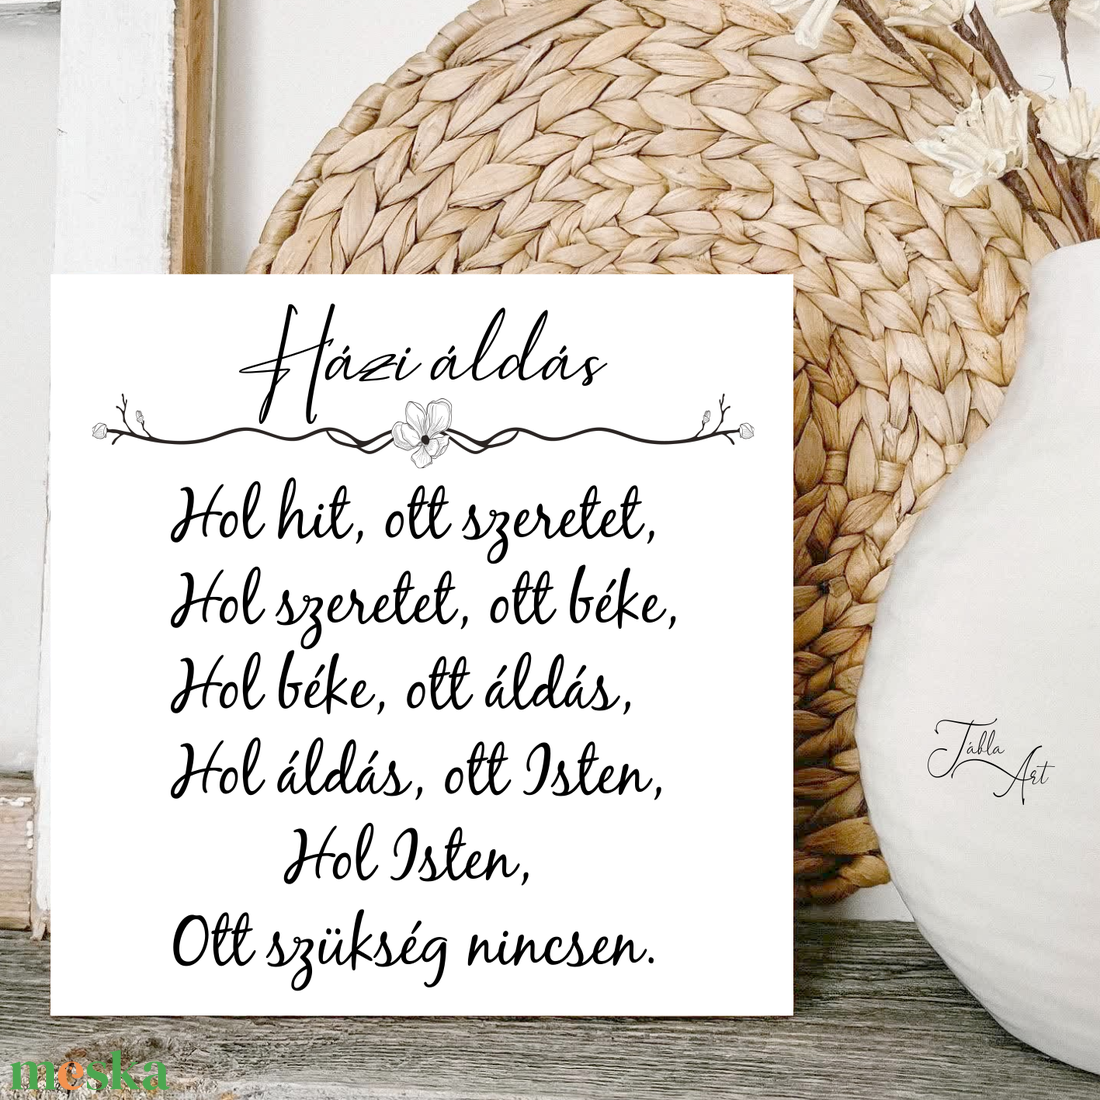 Házi áldás
Hol hit, ott szeretet,
Hol szeretet, ott béke,
Hol béke, ott áldás,
Hol áldás, ott Isten,
Hol Isten,
Ott szükség nincsen.
Tábla
Art
meska